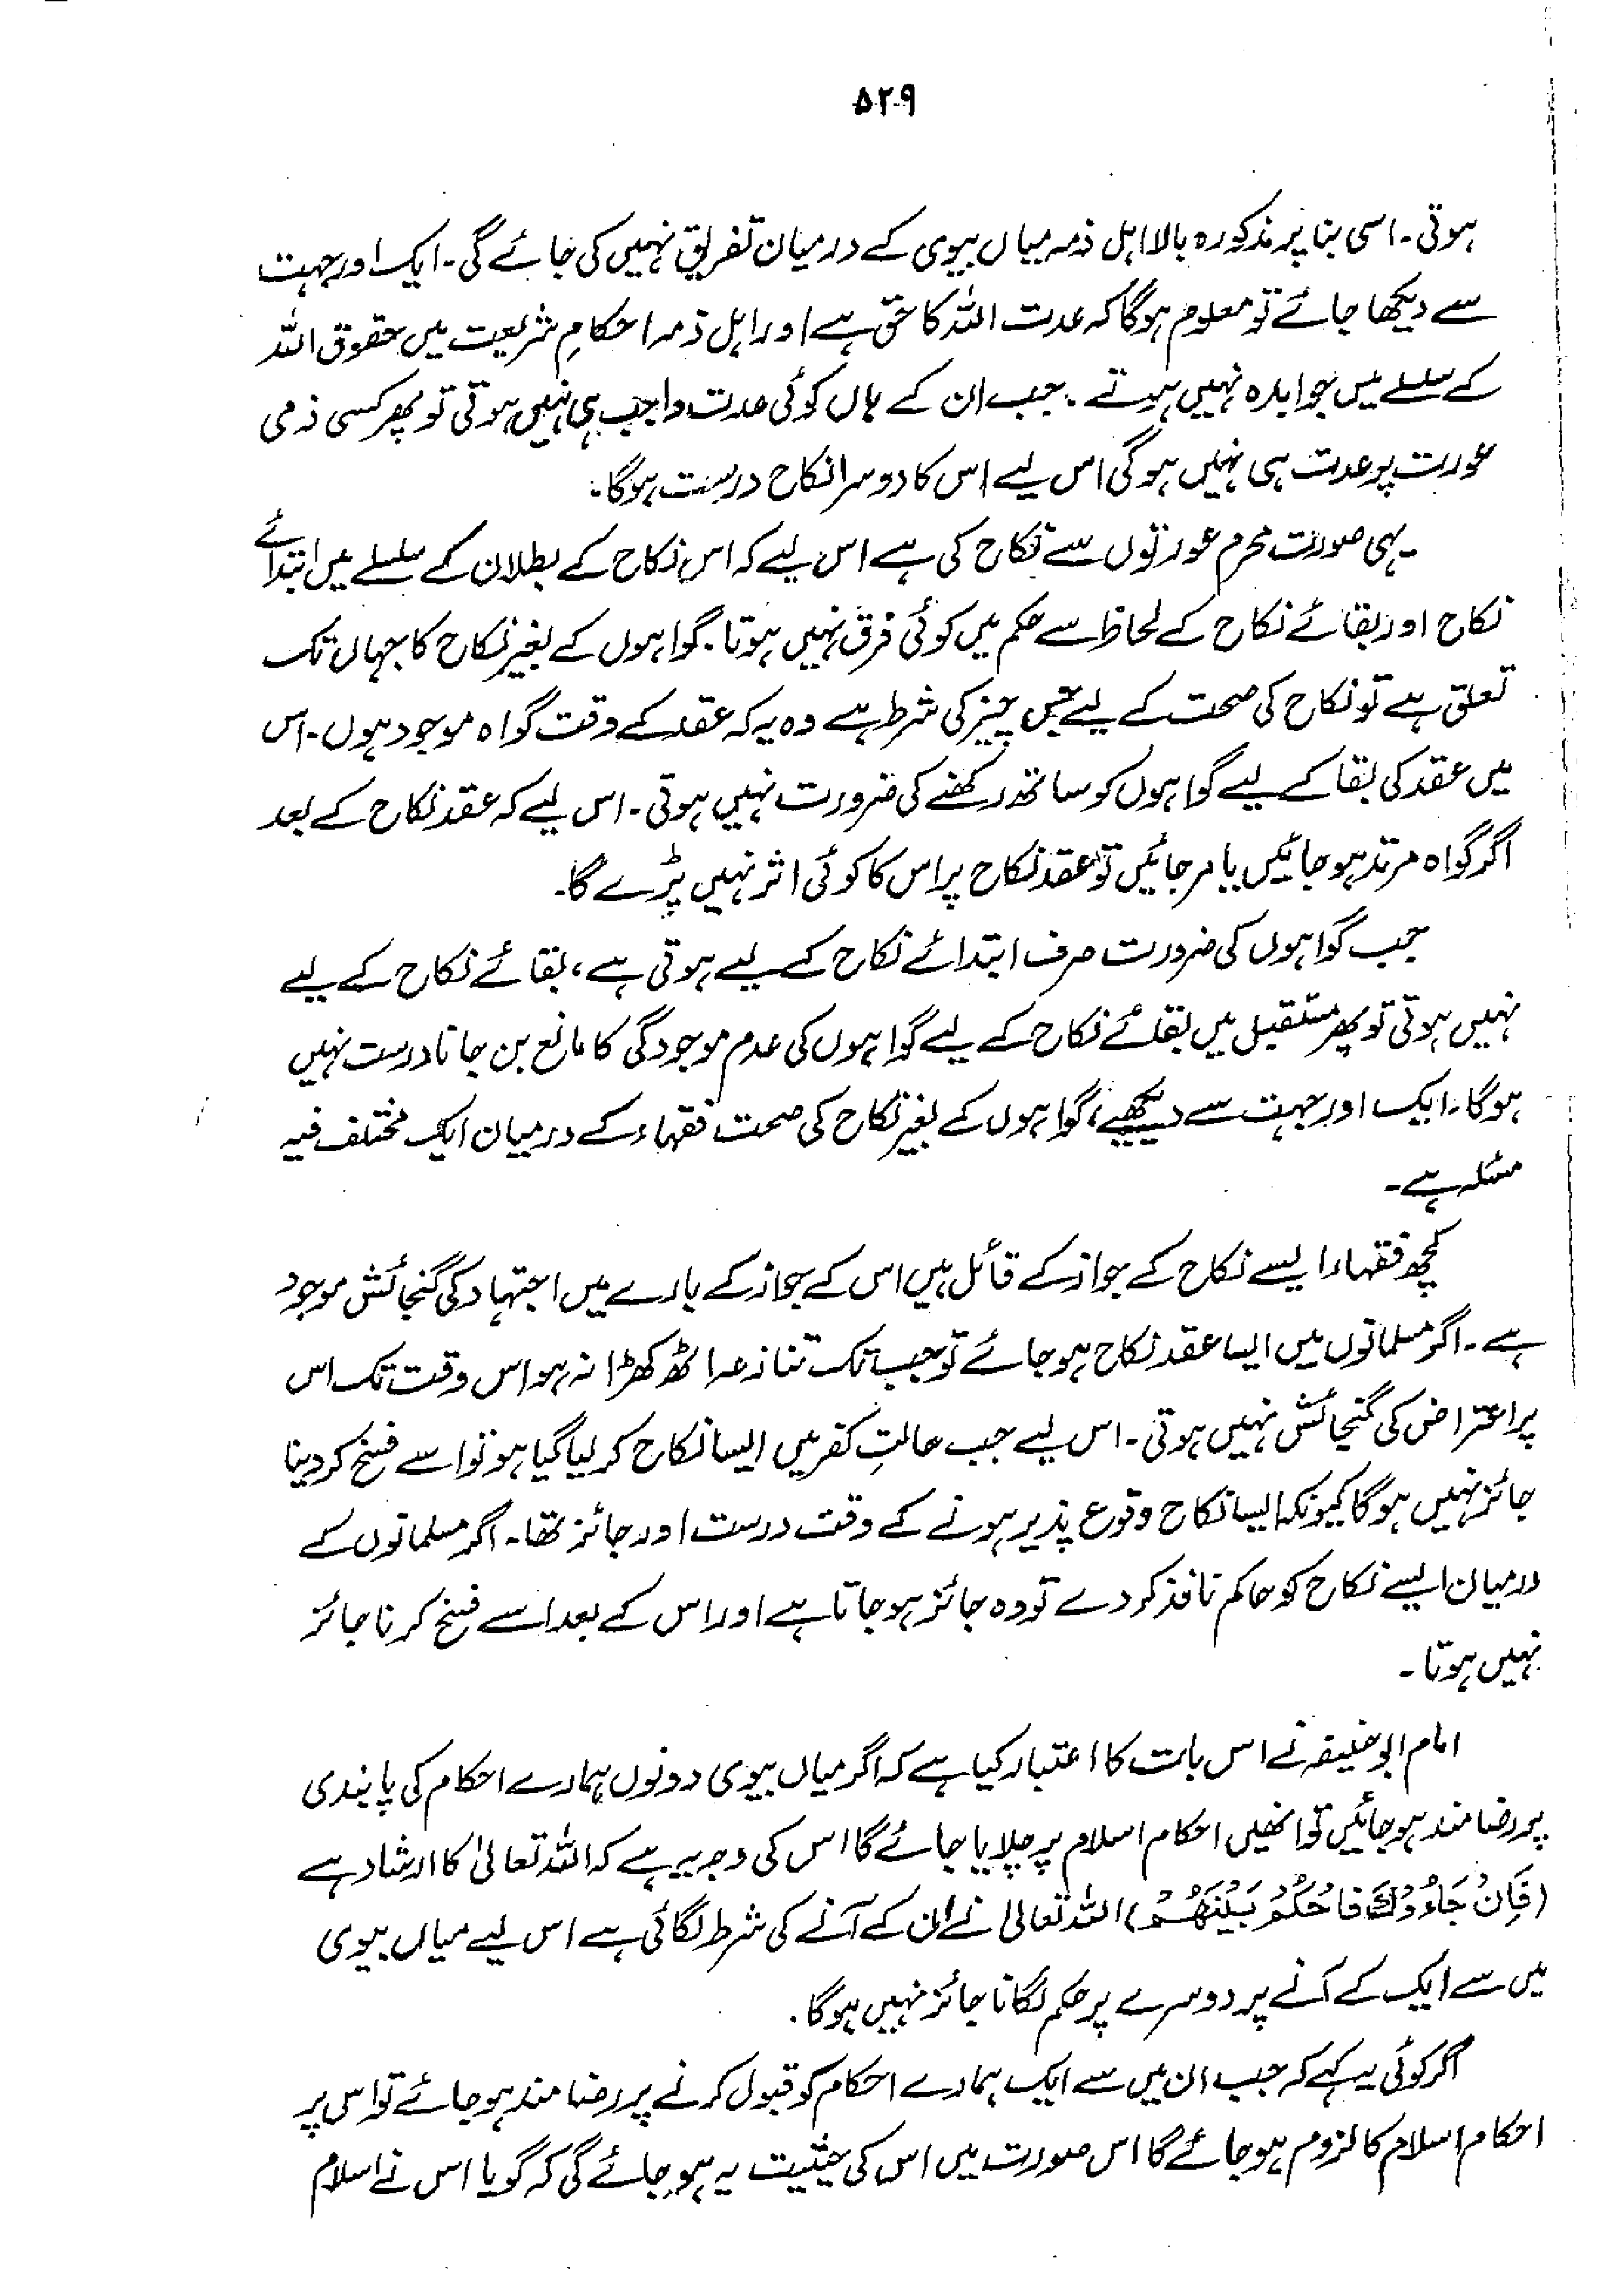 ۵۲۹
ہوتی۔ اسی بنا پر مذکورہ بالا اہل ذمہ میاں بیوی کے درمیان تفریق نہیں کی جائے گی۔ ایک اور جہت
سے دیکھا جائے تو معلوم ہوگا کہ عدت اللہ کا حق ہے اور اہل ذمہ احکامِ شریعت میں حقوق اللہ
کے سلسلے میں جوابدہ نہیں ہوتے۔ جب ان کے ہاں کوئی عدت واجب ہی نہیں ہوتی تو پھر کسی ذمی
عورت پر عدت ہی نہیں ہوگی اس لیے اس کا دوسرا نکاح درست ہوگا۔
یہی صورت محرم عورتوں سے نکاح کی ہے اس لیے کہ اس نکاح کے بطلان کے سلسلے میں ابتدائے
نکاح اور بقائے نکاح کے لحاظ سے حکم میں کوئی فرق نہیں ہوتا۔ گواہوں کے بغیر نکاح کا جہاں تک
تعلق ہے تو نکاح کی صحت کے لیے جس چیز کی شرط ہے وہ یہ کہ عقد کے وقت گواہ موجود ہوں۔ اس
میں عقد کی بقا کے لیے گواہوں کو ساتھ رکھنے کی ضرورت نہیں ہوتی۔ اس لیے کہ عقد نکاح کے بعد
اگر گواہ مرتد ہو جائیں یا مر جائیں تو عقد نکاح پر اس کا کوئی اثر نہیں پڑے گا۔
جب گواہوں کی ضرورت صرف ابتدائے نکاح کے لیے ہوتی ہے، بقائے نکاح کے لیے
نہیں ہوتی تو پھر مستقبل میں بقائے نکاح کے لیے گواہوں کی عدم موجودگی کا مانع بن جانا درست نہیں
ہوگا۔ ایک اور جہت سے دیکھیے، گواہوں کے بغیر نکاح کی صحت فقہاء کے درمیان ایک مختلف فیہ
مسئلہ ہے۔
کچھ فقہاء ایسے نکاح کے جواز کے قائل ہیں اس کے جواز کے بارے میں اجتہاد کی گنجائش موجود
ہے۔ اگر مسلمانوں میں ایسا عقد نکاح ہو جائے تو جب تک تنازعہ اٹھ کھڑا نہ ہو اس وقت تک اس
پر اعتراض کی گنجائش نہیں ہوتی۔ اس لیے جب حالتِ کفر میں ایسا نکاح کر لیا گیا ہو تو اسے فسخ کر دینا
جائز نہیں ہوگا کیونکہ ایسا نکاح وقوع پذیر ہونے کے وقت درست اور جائز تھا۔ اگر مسلمانوں کے
درمیان ایسے نکاح کو حاکم نافذ کر دے تو وہ جائز ہو جاتا ہے اور اس کے بعد اسے فسخ کرنا جائز
نہیں ہوتا۔
امام ابو حنیفہ نے اس بات کا اعتبار کیا ہے کہ اگر میاں بیوی دونوں ہمارے احکام کی پابندی
پر رضامند ہو جائیں تو انھیں احکام اسلام پر چلایا جائے گا اس کی وجہ یہ ہے کہ اللہ تعالیٰ کا ارشاد ہے
(فَاِنْ جَاءُوْكَ فَاحْكُمْ بَيْنَهُمْ) اللہ تعالیٰ نے ان کے آنے کی شرط لگائی ہے اس لیے میاں بیوی
میں سے ایک کے آنے پر دوسرے پر حکم لگانا جائز نہیں ہوگا۔
اگر کوئی یہ کہے کہ جب ان میں سے ایک ہمارے احکام کو قبول کرنے پر رضامند ہو جائے تو اس پر
احکام اسلام کا لزوم ہو جائے گا اس صورت میں اس کی حیثیت یہ ہو جائے گی کہ گویا اس نے اسلام